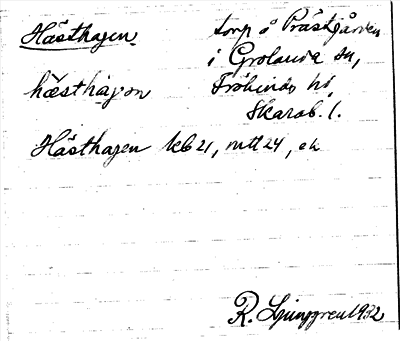 Hästhagen torp å Prästgården
i Grolanda sn,
hæsthagon Frökinds hd,
Skarab. l.
Hästhagen kb 21, mtl 24, ek
R. Ljunggren 1932